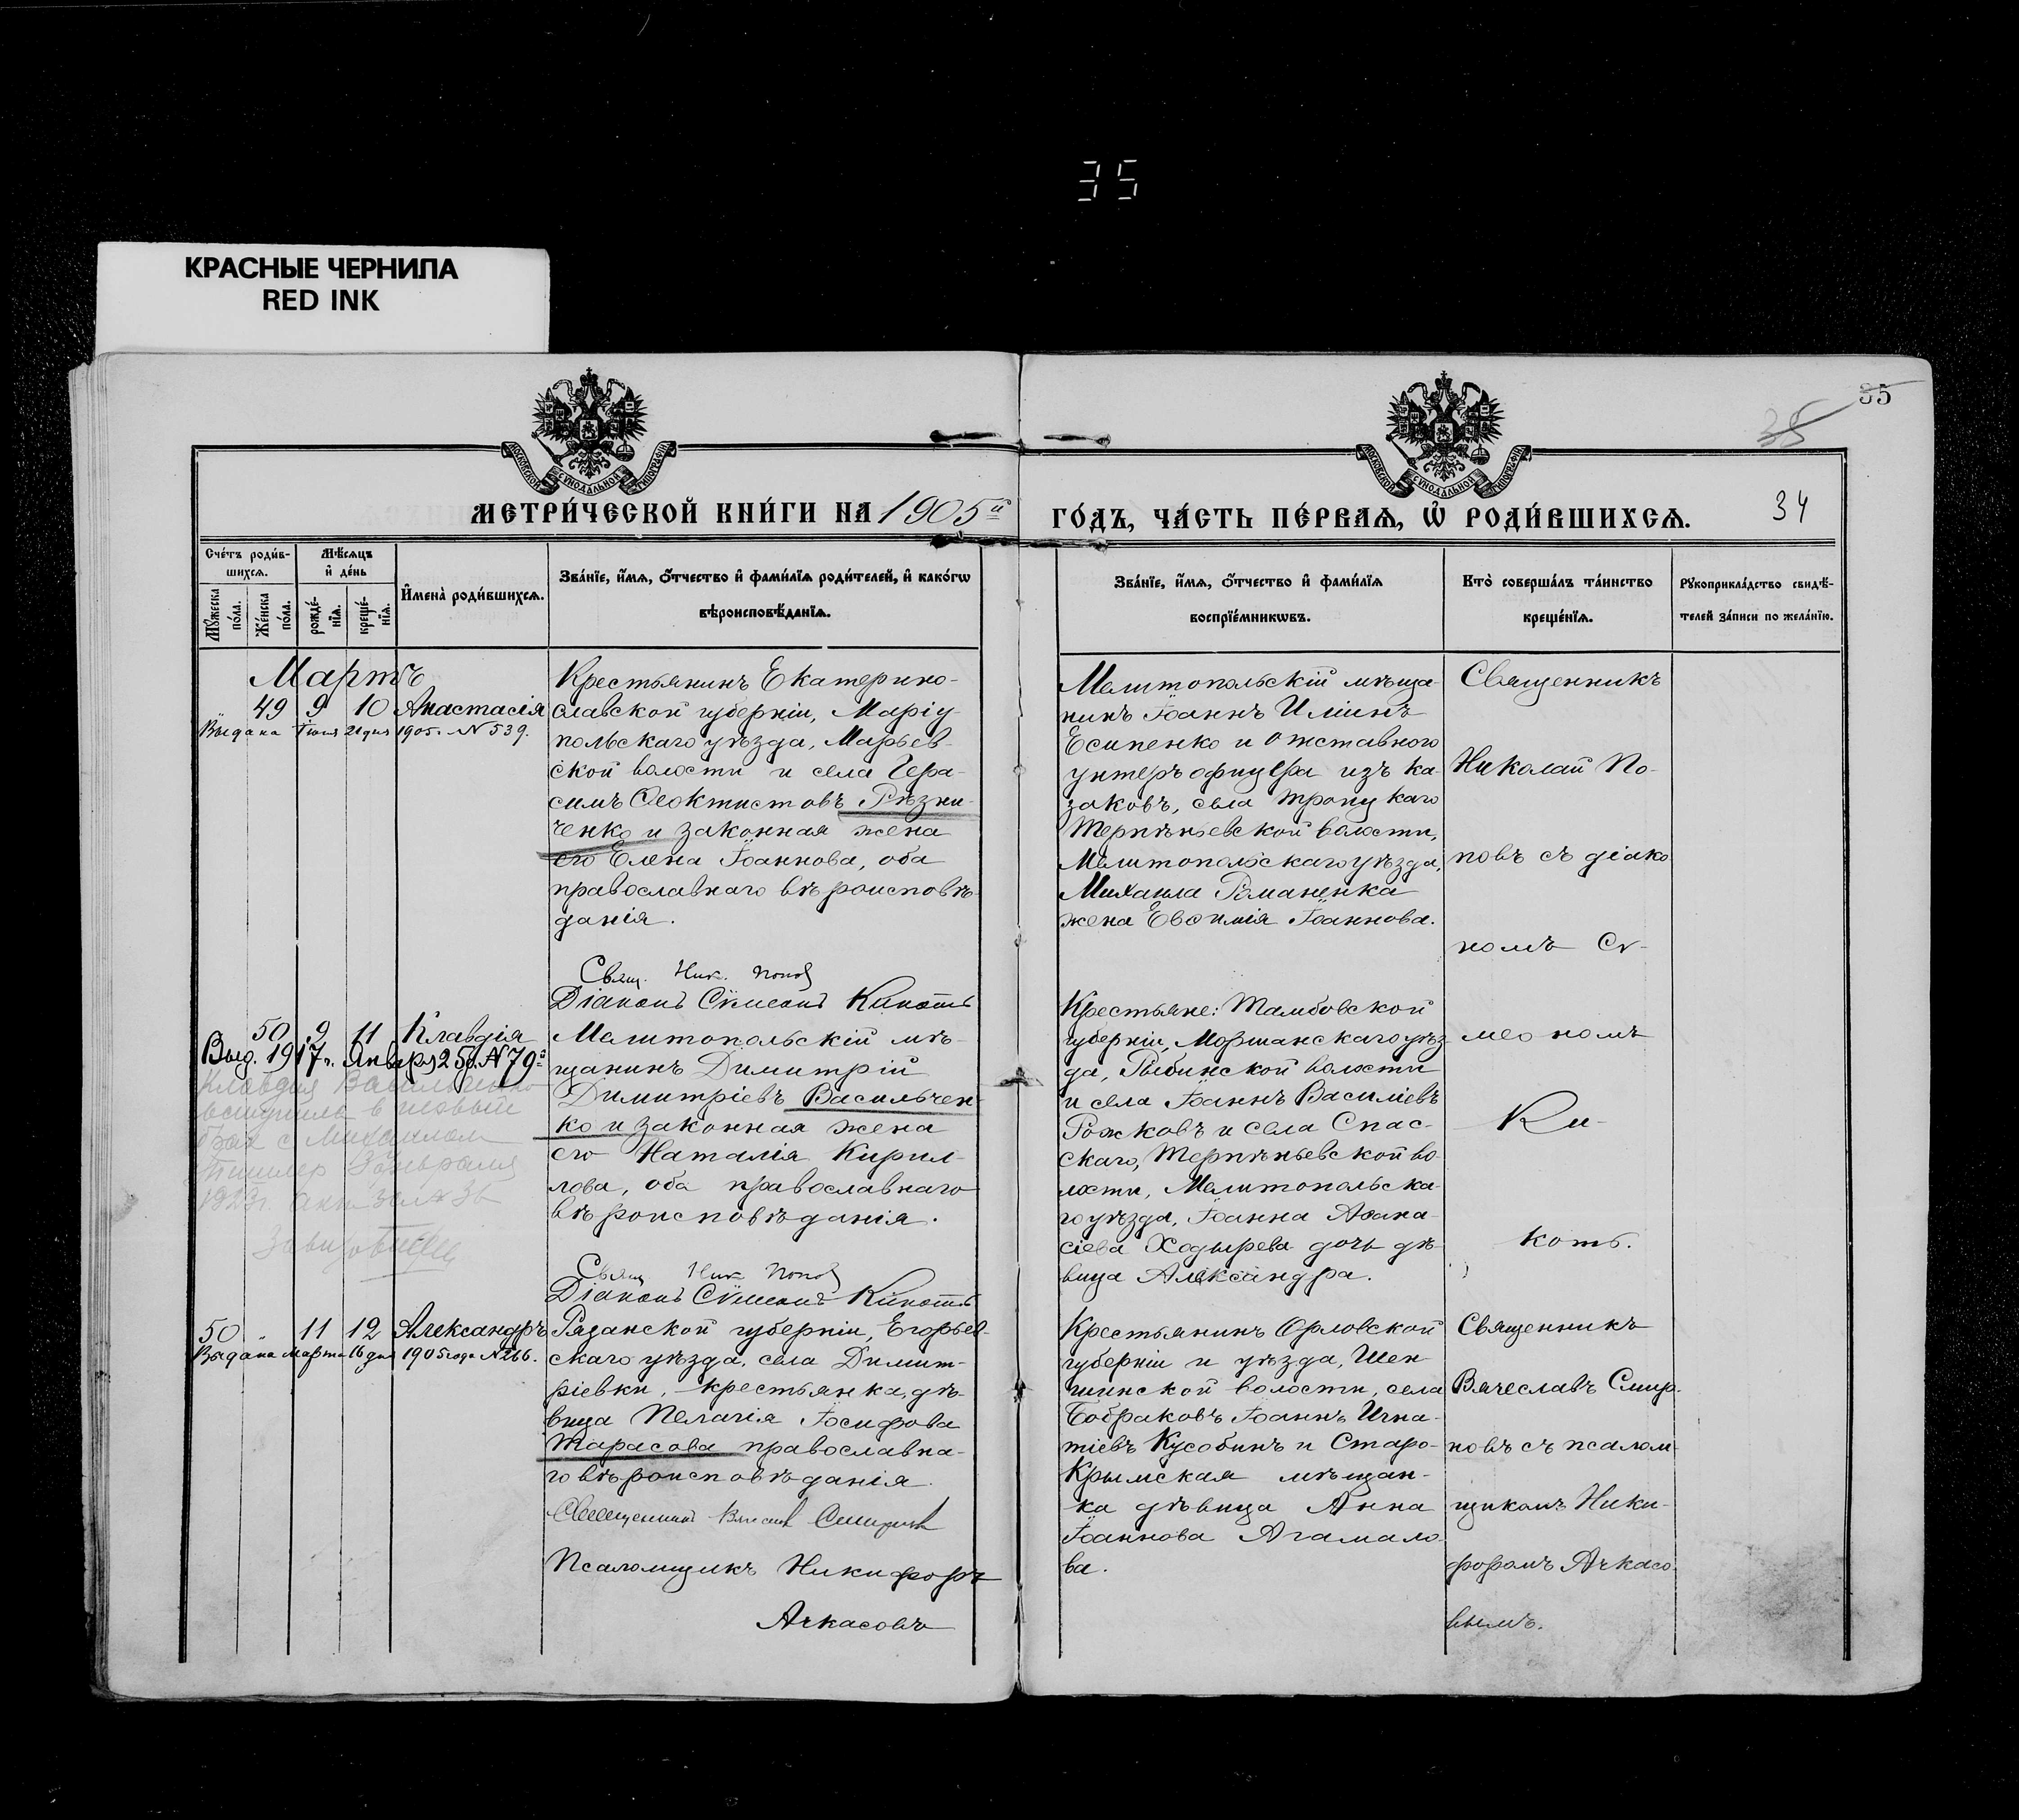 35
КРАСНЫЕ ЧЕРНИЛА
RED INK
35
35
МОСКОВСКОЙ СУНОДАЛЬНОЙ ТИПОГРАФІИ
МОСКОВСКОЙ СУНОДАЛЬНОЙ ТИПОГРАФІИ
МЕТРИ́ЧЕСКОЙ КНИ́ГИ НА 1905й
ГО́ДЪ, ЧА́СТЬ ПЕ́РВАѦ, Ѡ҆ РОДИ́ВШИХСѦ.
34
Сче́тъ роди́в-
шихсѧ.
Мѣ́сѧцъ
и҆ де́нь
Мꙋ́жеска
по́ла.
Же́нска
по́ла.
рожде́-
нїѧ.
креще́-
нїѧ.
И҆мена̀ роди́вшихсѧ.
Зва́нїе, и҆́мѧ, ѻ҆́тчество и҆ фами́лїѧ роди́телей, и҆ како́гѡ
вѣроисповѣ́данїѧ.
Зва́нїе, и҆́мѧ, ѻ҆́тчество и҆ фами́лїѧ
воспрїе́мникѡвъ.
Кто̀ соверша́лъ та́инство
креще́нїѧ.
Рꙋкоприкла́дство свидѣ́-
телей за́писи по жела́нїю.
Мартъ
49 9 10 Анастасія
Выдана Іюня 21 дня 1905 г. № 539.
Крестьянинъ Екатерино-
славской губерніи, Маріу-
польскаго уѣзда, Марьев-
ской волости и села Гера-
симъ Ѳеоктистовъ Рѣзни-
ченко и законная жена
его Елена Іоаннова, оба
православнаго вѣроисповѣ-
данія.
Свящ. Ник. Попов
Діаконъ Сѵмеонъ Кикоть
Мелитопольскій мѣща-
нинъ Іоаннъ Иліинъ
Есипенко и отставного
унтеръ офицера изъ ка-
заковъ, села Троицкаго
Терпѣньевской волости,
Мелитопольскаго уѣзда,
Михаила Романенка
жена Евѳимія Іоаннова.
Священникъ
Николай По-
повъ съ діако-
номъ Сѵ-
меономъ
Ки-
коть.
50 9 11 Клавдія
Выд. 1917 г. Января 25 д. № 79
Клавдия Васильченко
вступила в новый
брак с Михаилом
1923 г.
Мелитопольскій мѣ-
щанинъ Димитрій
Димитріевъ Васильчен-
ко и законная жена
его Наталія Кирил-
лова, оба православнаго
вѣроисповѣданія.
Свящ Ник Попов
Діаконъ Сѵмеонъ Кикоть
Крестьяне: Тамбовской
губерніи, Моршанскаго уѣз-
да, Рыбинской волости
и села Іоаннъ Василіевъ
Рожковъ и села Спас-
скаго, Терпѣньевской во-
лости, Мелитопольска-
го уѣзда, Іоанна Аѳана-
сіева Ходырева дочь дѣ-
вица Александра.
50 " 11 12 Александръ
Выдана марта 16 дня 1905 года № 266.
Рязанской губерніи, Егорьев-
скаго уѣзда, села Димит-
ріевки, крестьянка, дѣ-
вица Пелагія Іосифова
Тарасова православна-
го вѣроисповѣданія.
Священникъ Вячеслав Смирнов
Псаломщикъ Никифоръ
Ачкасовъ
Крестьянинъ Орловской
губерніи и уѣзда, Шен-
шинской волости, села
Бобраковъ Іоаннъ Игна-
тіевъ Кусобинъ и Старо-
Крымская мѣщан-
ка дѣвица Анна
Іоаннова Агамало-
ва.
Священникъ
Вячеславъ Смир-
новъ съ псалом-
щикомъ Ники-
форомъ Ачкасо-
вымъ.